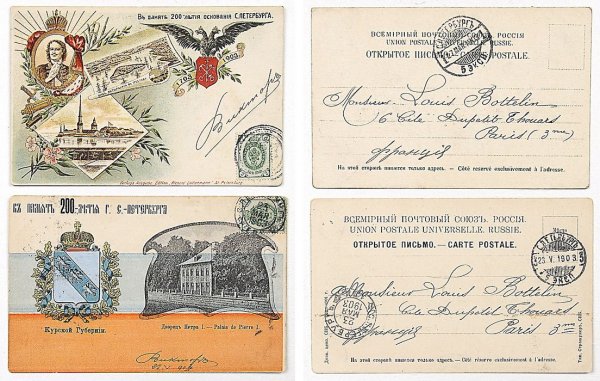 Въ память 200-лѣтія основанія С.ПЕТЕРБУРГА.
1703
1903
Викторъ
ВСЕМІРНЫЙ ПОЧТОВЫЙ СОЮЗЪ. РОССІЯ
UNION POSTALE UNIVERSELLE. RUSSIE.
ОТКРЫТОЕ ПИСЬМО POSTALE.
Monsieur Louis Bottelin
6 Cité Dupetit Thouars
Paris (3me)
франція
На этой сторонѣ пишется только адресъ. — Côté réservé exclusivement à l'adresse.
ВЪ ПАМЯТЬ 200-ЛѢТІЯ Г. С.-ПЕТЕРБУРГА
Курской Губерніи.
Дворецъ Петра I. — Palais de Pierre I
Викторъ
ВСЕМІРНЫЙ ПОЧТОВЫЙ СОЮЗЪ. РОССІЯ.
UNION POSTALE UNIVERSELLE. RUSSIE.
ОТКРЫТОЕ ПИСЬМО. — CARTE POSTALE.
23. V. 1903
23
МАЯ
1903
Monsieur Louis Bottelin
Cité Dupetit Thouars
франція
Paris 3me
На этой сторонѣ пишется только адресъ. — Côté réservé exclusivement à l'adresse.